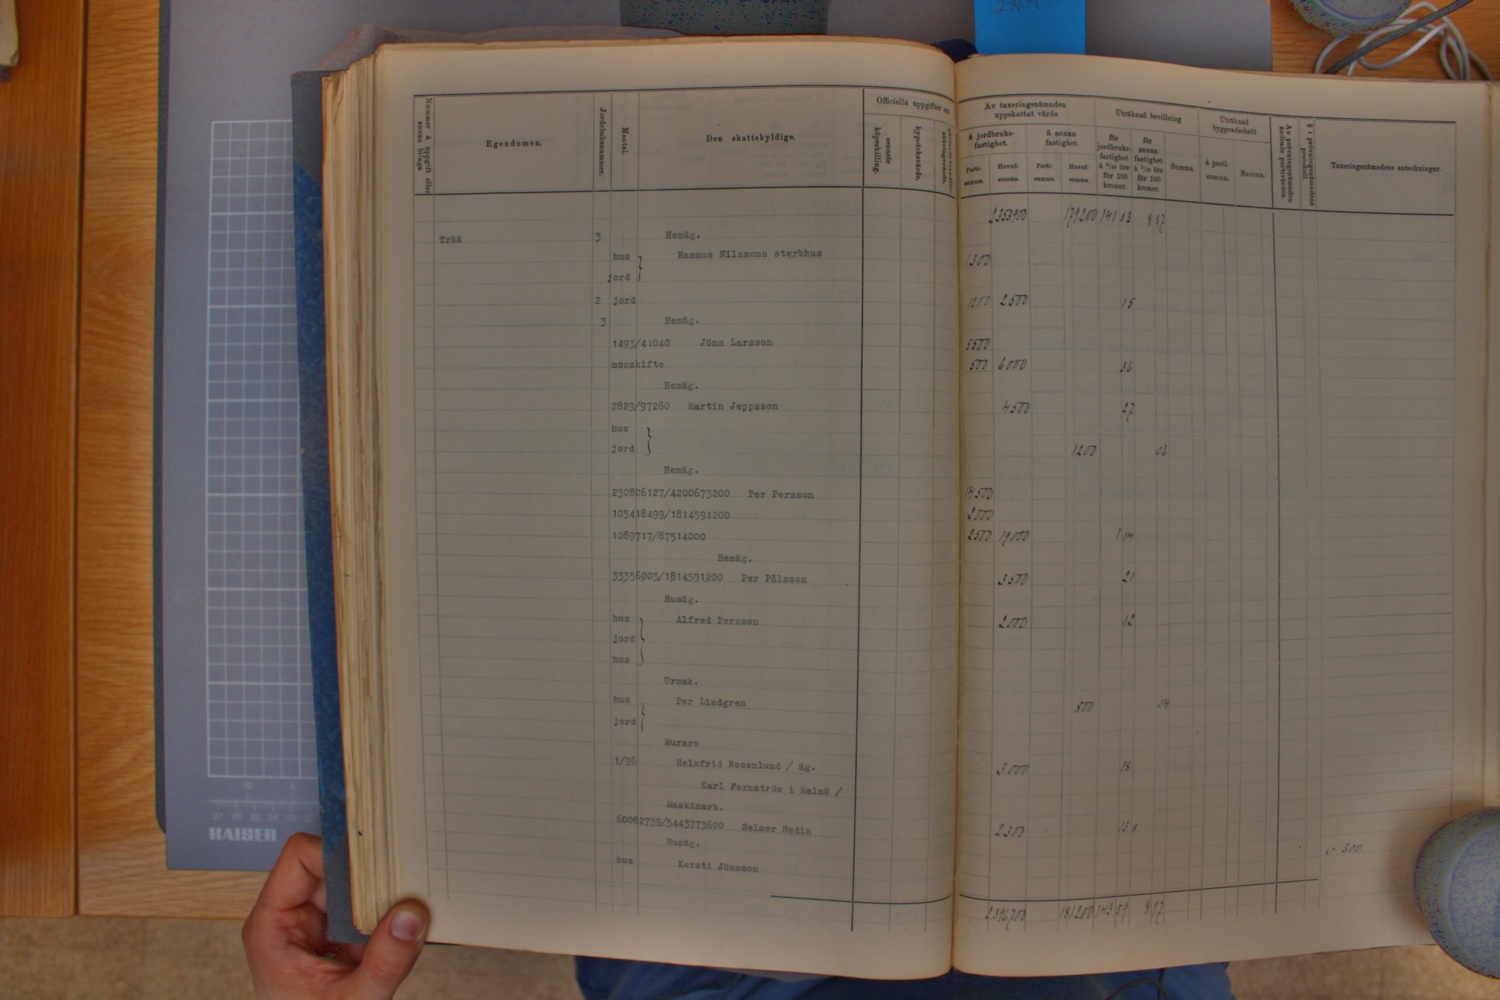 Nummer å uppgift eller annan bilaga
Egendomen.
Jordeboksnummer.
Mantal.
Den skattskyldige.
Officiella uppgifter om
senaste köpeskilling.
hypoteksvärde.
Av taxeringsnämnden uppskattat värde
å jordbruksfastighet.
å annan fastighet.
Parti-summa.
Huvud-summa.
Parti-summa.
Huvud-summa.
Uträknad bevillning
för jordbruksfastighet
för annan fastighet
för 100 kronor.
för 100 kronor.
Summa.
Uträknad
å parti-summa.
Summa.
Taxeringsnämndens anteckningar.
179200 141 03 8.87
Trää 3 Hemäg.
hus Rasmus Nilssons sterbhus 1300
jord
2 jord 1200 2500 15
3 Hemäg.
1493/41040 Jöns Larsson 5500
mosskifte 500 6000 36
Hemäg.
2829/97280 Martin Jeppsson 4500 27
hus
jord 1200
Hemäg.
230806127/4200673200 Per Persson 14500
105418499/1814591200 2000
1089717/87514000 2500 19000 1 14
Hemäg.
33356003/1814591200 Per Pålsson 3500 21
Husäg.
hus Alfred Persson 2000 12
jord
hus
Urmak.
hus Per Lindgren 800
jord
Murare
1/96 Helmfrid Rosenlund / äg. 3000 18
Karl Fernström i Malmö /
Maskinarb.
60082739/5443773600 Selmer Hedin 2300
Husäg.
hus Kersti Jönsson
2396700 181200 143 59
KAISER